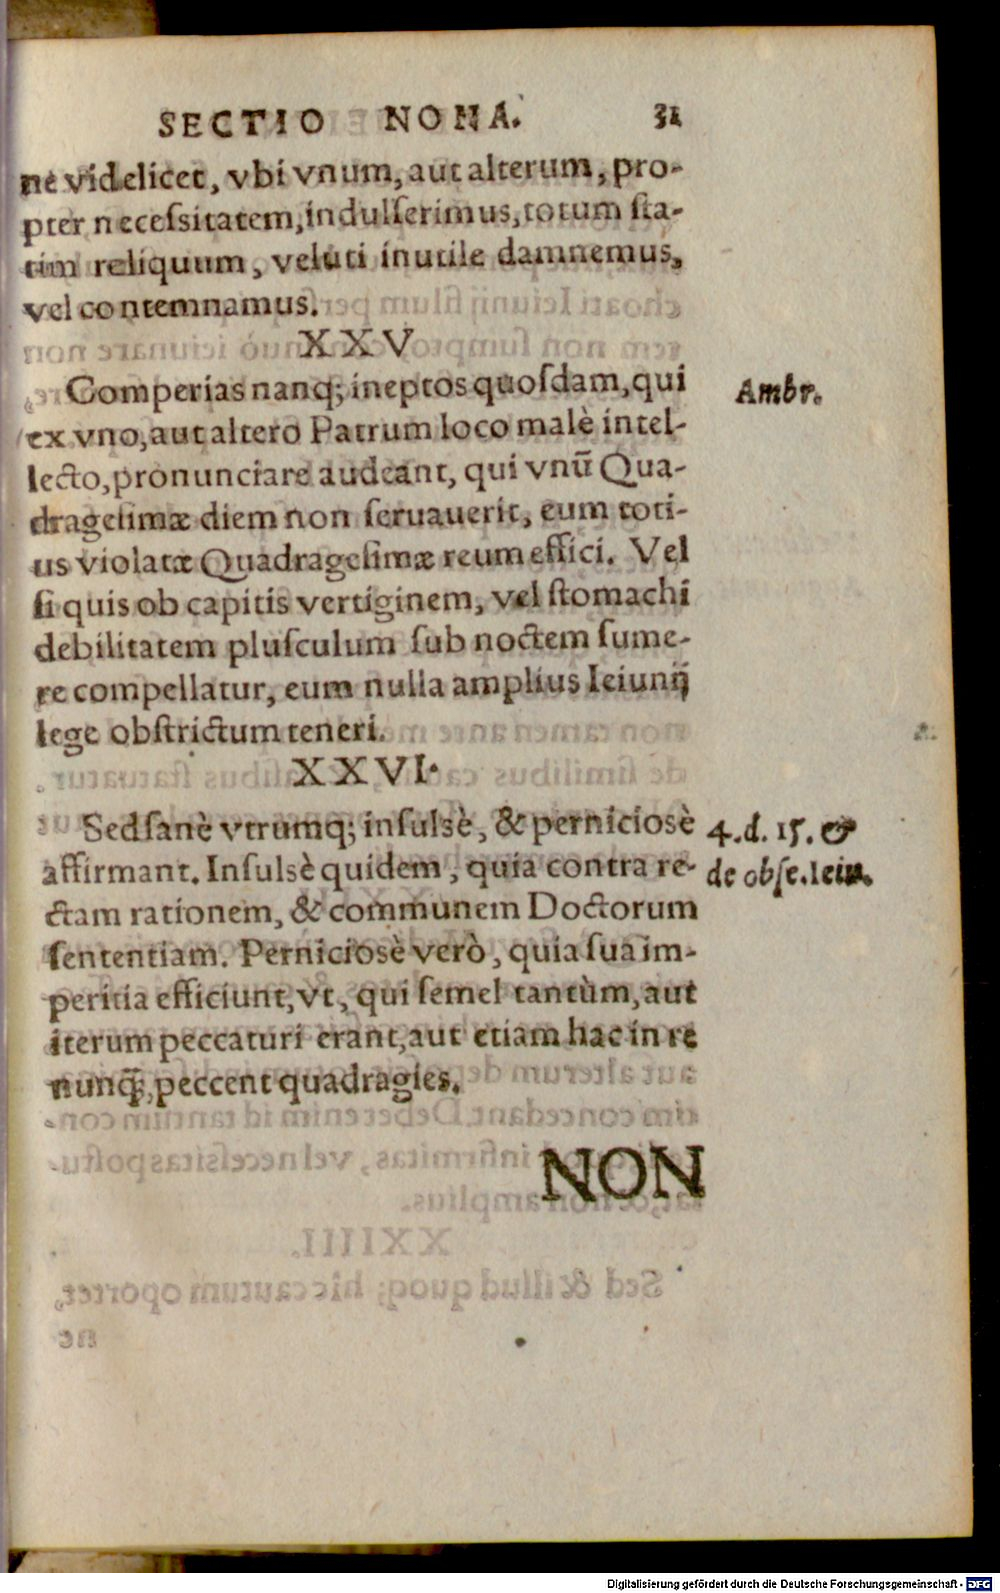 SECTIO NONA. 31
ne videlicet, vbi vnum, aut alterum, pro-
pter necessitatem, indulserimus, totum sta-
tim reliquum, veluti inutile damnemus,
vel contemnamus.
XXV
Comperias nanq; ineptos quosdam, qui
Ambr.
ex vno, aut altero Patrum loco malè intel-
lecto, pronunciare audeant, qui vnũ Qua-
dragesimæ diem non seruauerit, eum toti-
us violatæ Quadragesimæ reum effici. Vel
si quis ob capitis vertiginem, vel stomachi
debilitatem plusculum sub noctem sume-
re compellatur, eum nulla amplius Ieiunij
lege obstrictum teneri.
XXVI.
Sed sanè vtrumq; insulsè, & perniciosè
4. d. 15. &
affirmant. Insulsè quidem, quia contra re-
de obse. Ieiu.
ctam rationem, & communem Doctorum
sententiam. Perniciosè verò, quia sua im-
peritia efficiunt, vt, qui semel tantùm, aut
iterum peccaturi erant, aut etiam hac in re
nunq̃, peccent quadragies.
NON
Digitalisierung gefördert durch die Deutsche Forschungsgemeinschaft - DFG